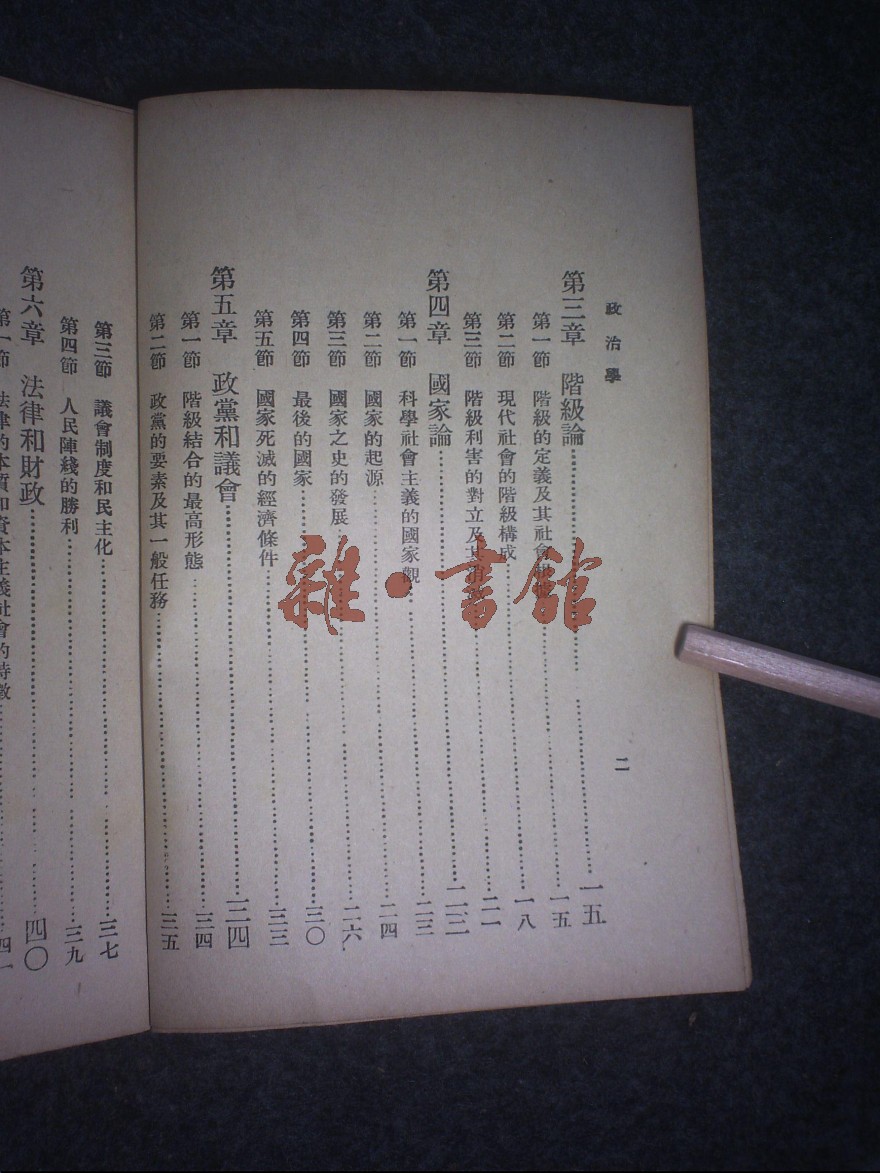 政治學
二
第三章 階級論 一五
第一節 階級的定義及其社會 一五
第二節 現代社會的階級構成 一八
第三節 階級利害的對立及其 二一
第四章 國家論 二三
第一節 科學社會主義的國家觀 二三
第二節 國家的起源 二四
第三節 國家之史的發展 二六
第四節 最後的國家 三〇
第五節 國家死滅的經濟條件 三三
第五章 政黨和議會 三四
第一節 階級結合的最高形態 三四
第二節 政黨的要素及其一般任務 三五
第三節 議會制度和民主化 三七
第四節 人民陣綫的勝利 三九
第六章 法律和財政 四〇
第一節 法律的本質和資本主義社會的特徵 四一
雜·書館